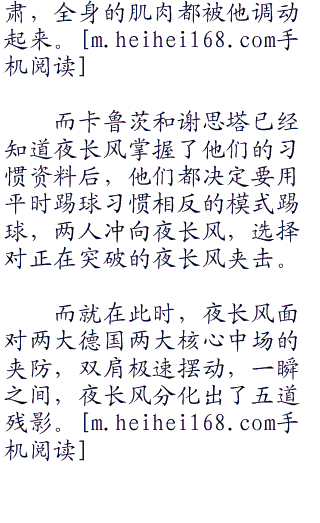 肃，全身的肌肉都被他调动
起来。[m.heihei168.com手
机阅读]
而卡鲁茨和谢思塔已经
知道夜长风掌握了他们的习
惯资料后，他们都决定要用
平时踢球习惯相反的模式踢
球，两人冲向夜长风，选择
对正在突破的夜长风夹击。
而就在此时，夜长风面
对两大德国两大核心中场的
夹防，双肩极速摆动，一瞬
之间，夜长风分化出了五道
残影。[m.heihei168.com手
机阅读]